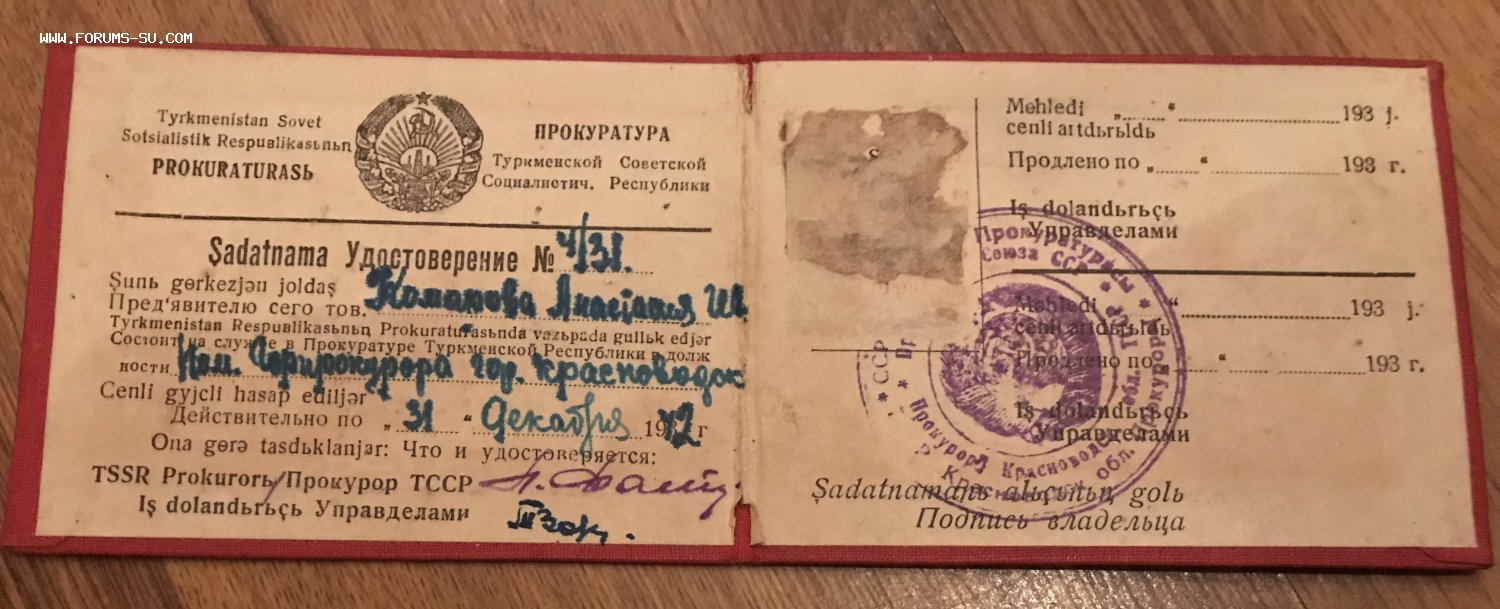 www.FORUMS-SU.COM
Tyrkmenistan Sovet
Sotsialistik Respublikasьnьꞑ
PROKURATURASЬ
ПРОКУРАТУРА
Туркменской Советской
Социалистич. Республики
Şadatnama Удостоверение № 4/31.
Şunь gɵrkezjən joldaş
Пред'явителю сего тов. Комакова Анастасия Ив.
Tyrkmenistan Respublikasьnьꞑ Prokuraturasьnda vəzьpada gulluk edjər
Состоит на службе в Прокуратуре Туркменской Республики в долж
ности Пом. Горпрокурора гор. Красноводск
Cenli gyjcli hasap ediljər
Действительно по „ 31 “ Декабря 1942 г
Oꞑa gɵrə tassьklanjar: Что и удостоверяется:
TSSR Prokurorь/Прокурор ТССР
Iş dolandьrьçь Управделами
Mɵhledi „ “ 193 j.
cenli artdьrьldь
Продлено по „ “ 193 г.
Iş dolandьrьçь
Управделами
Mɵhledi “ 193 j.
cenli artdьrьldь
Продлено по „ “ 193 г.
Iş dolandьrьçь
Управделами
Şadatnamanь alьçьnьꞑ golь
Подпись владельца
Прокуратурасы
Союза ССР
Прокурор Красноводск. обл.